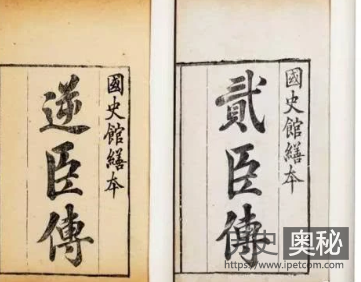 國史館繕本
逆臣傳
國史館繕本
貳臣傳
史奥秘
https://www.ipetcom.com